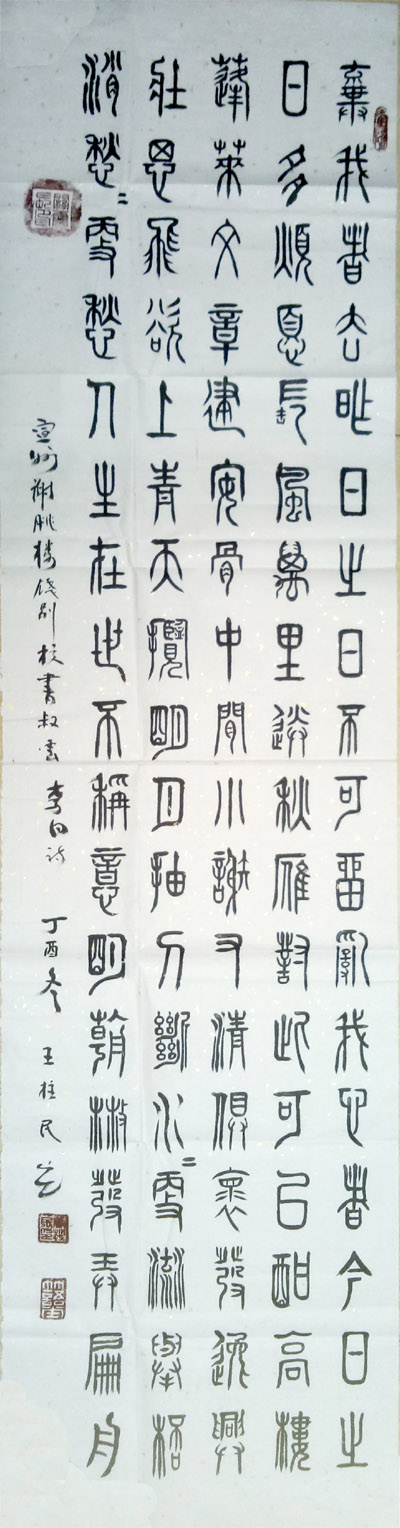 棄我者去昨日之日不可留亂我心者今日之
日多煩憂長風萬里送秋雁對此可以酣高樓
蓬萊文章建安骨中間小謝又清俱褱發逸興
壯思飛欲上青天攬明月抽刀斷水〻更流舉杯
消愁〻更愁人生在世不稱意明朝散發弄扁舟
宣州謝朓樓餞別校書叔雲 李白詩 丁酉冬 王柱民